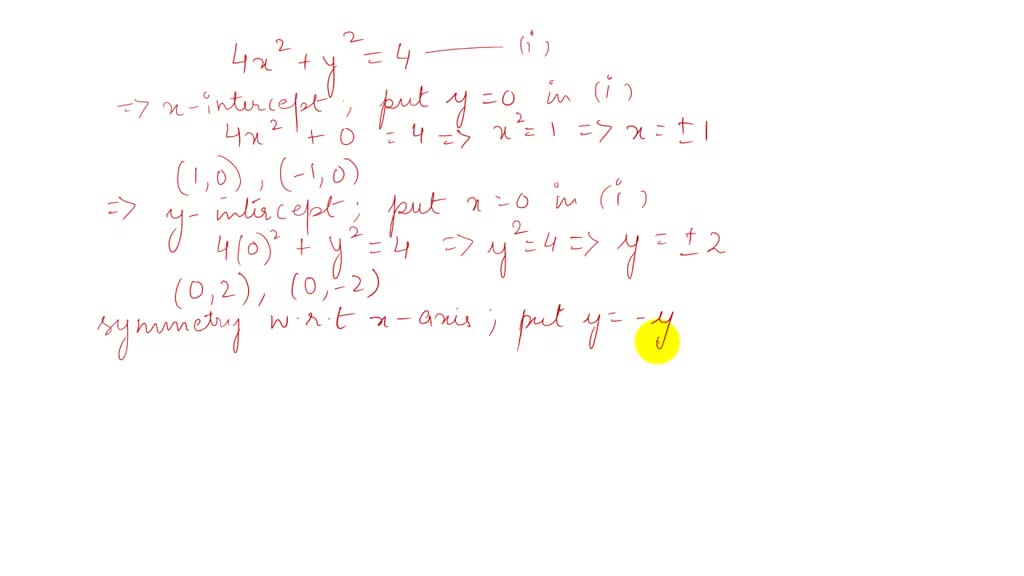 4x² + y² = 4 —— (i)
=> x-intercept; put y=0 in (i)
4x² + 0 = 4 => x² = 1 => x = ±1
(1,0), (-1,0)
=> y-intercept; put x=0 in (i)
4(0)² + y² = 4 => y² = 4 => y = ±2
(0,2), (0,-2)
symmetry w.r.t x-axis; put y = -y